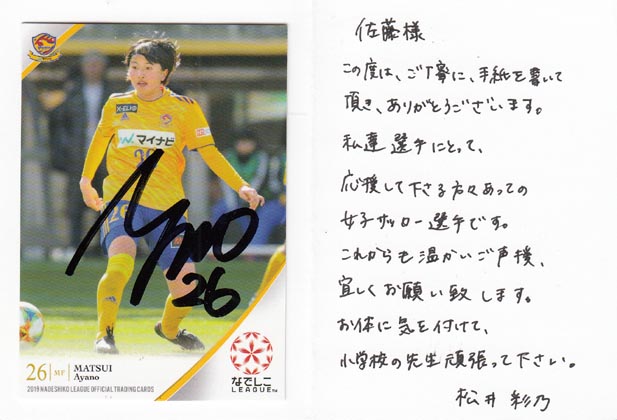 X-GIRLS
マイナビ
26
Ayano
26
26 MF MATSUI
Ayano
なでしこ
LEAGUE
2019 NADESHIKO LEAGUE OFFICIAL TRADING CARDS
佐藤様
この度は、ご丁寧に、手紙を書いて
頂き、ありがとうございます。
私達選手にとって、
応援して下さる方々あっての
女子サッカー選手です。
これからも温かいご声援、
宜しくお願い致します。
お体に気を付けて、
小学校の先生頑張って下さい。
松井彩乃